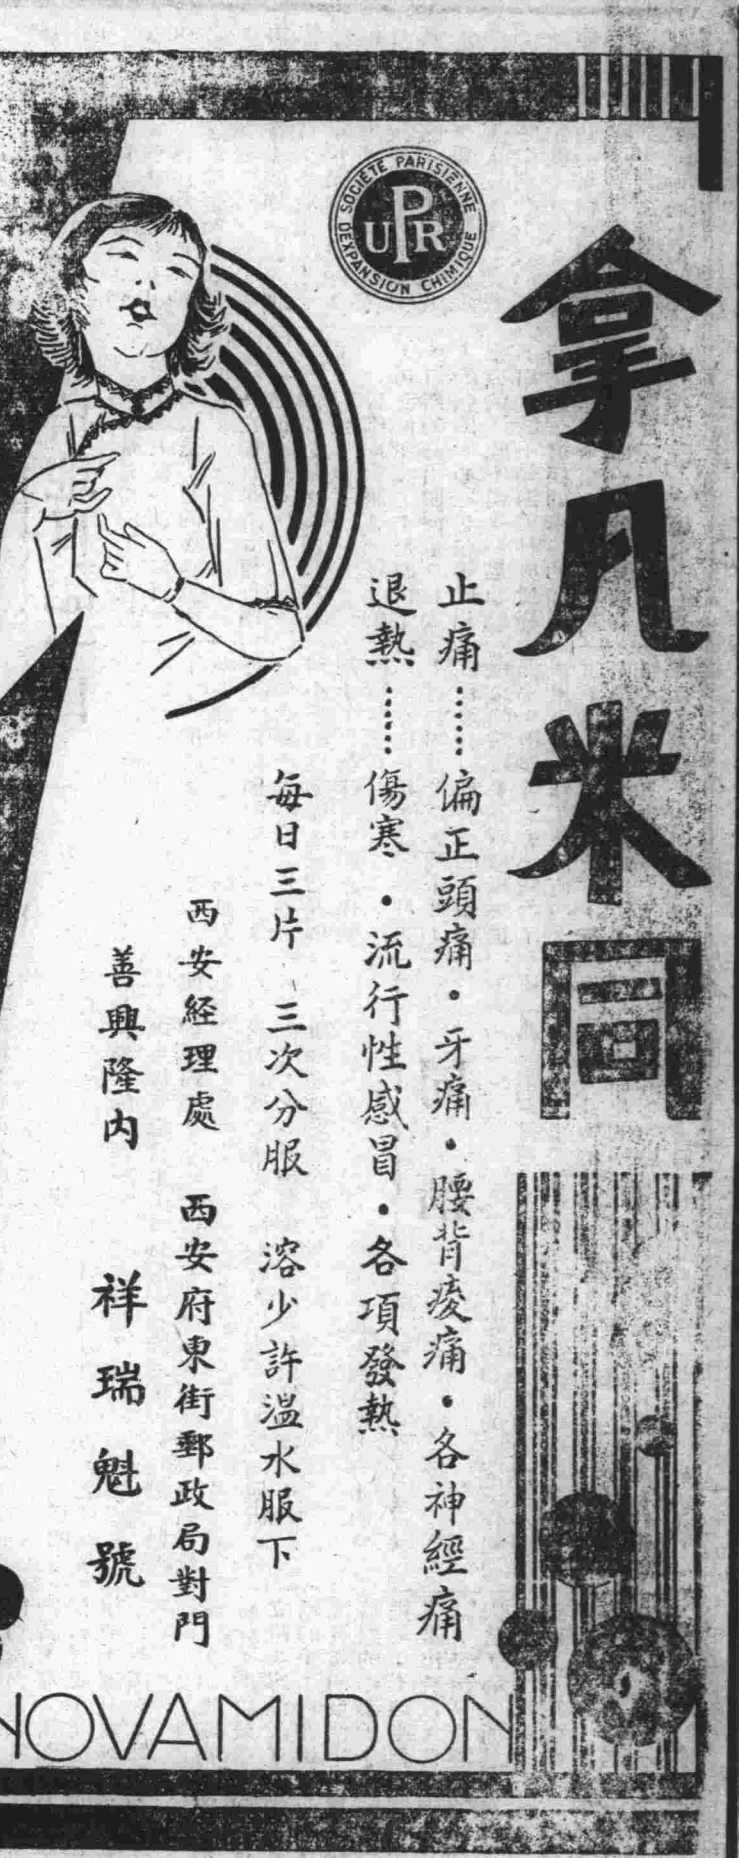 SOCIÉTÉ PARISIENNE D'EXPANSION CHIMIQUE
UPR
拿凡米同
止痛……偏正頭痛・牙痛・腰背痠痛・各神經痛
退熱……傷寒・流行性感冒・各項發熱
每日三片 三次分服 溶少許溫水服下
西安経理處 西安府東街郵政局對門
善興隆内 祥瑞魁號
NOVAMIDON